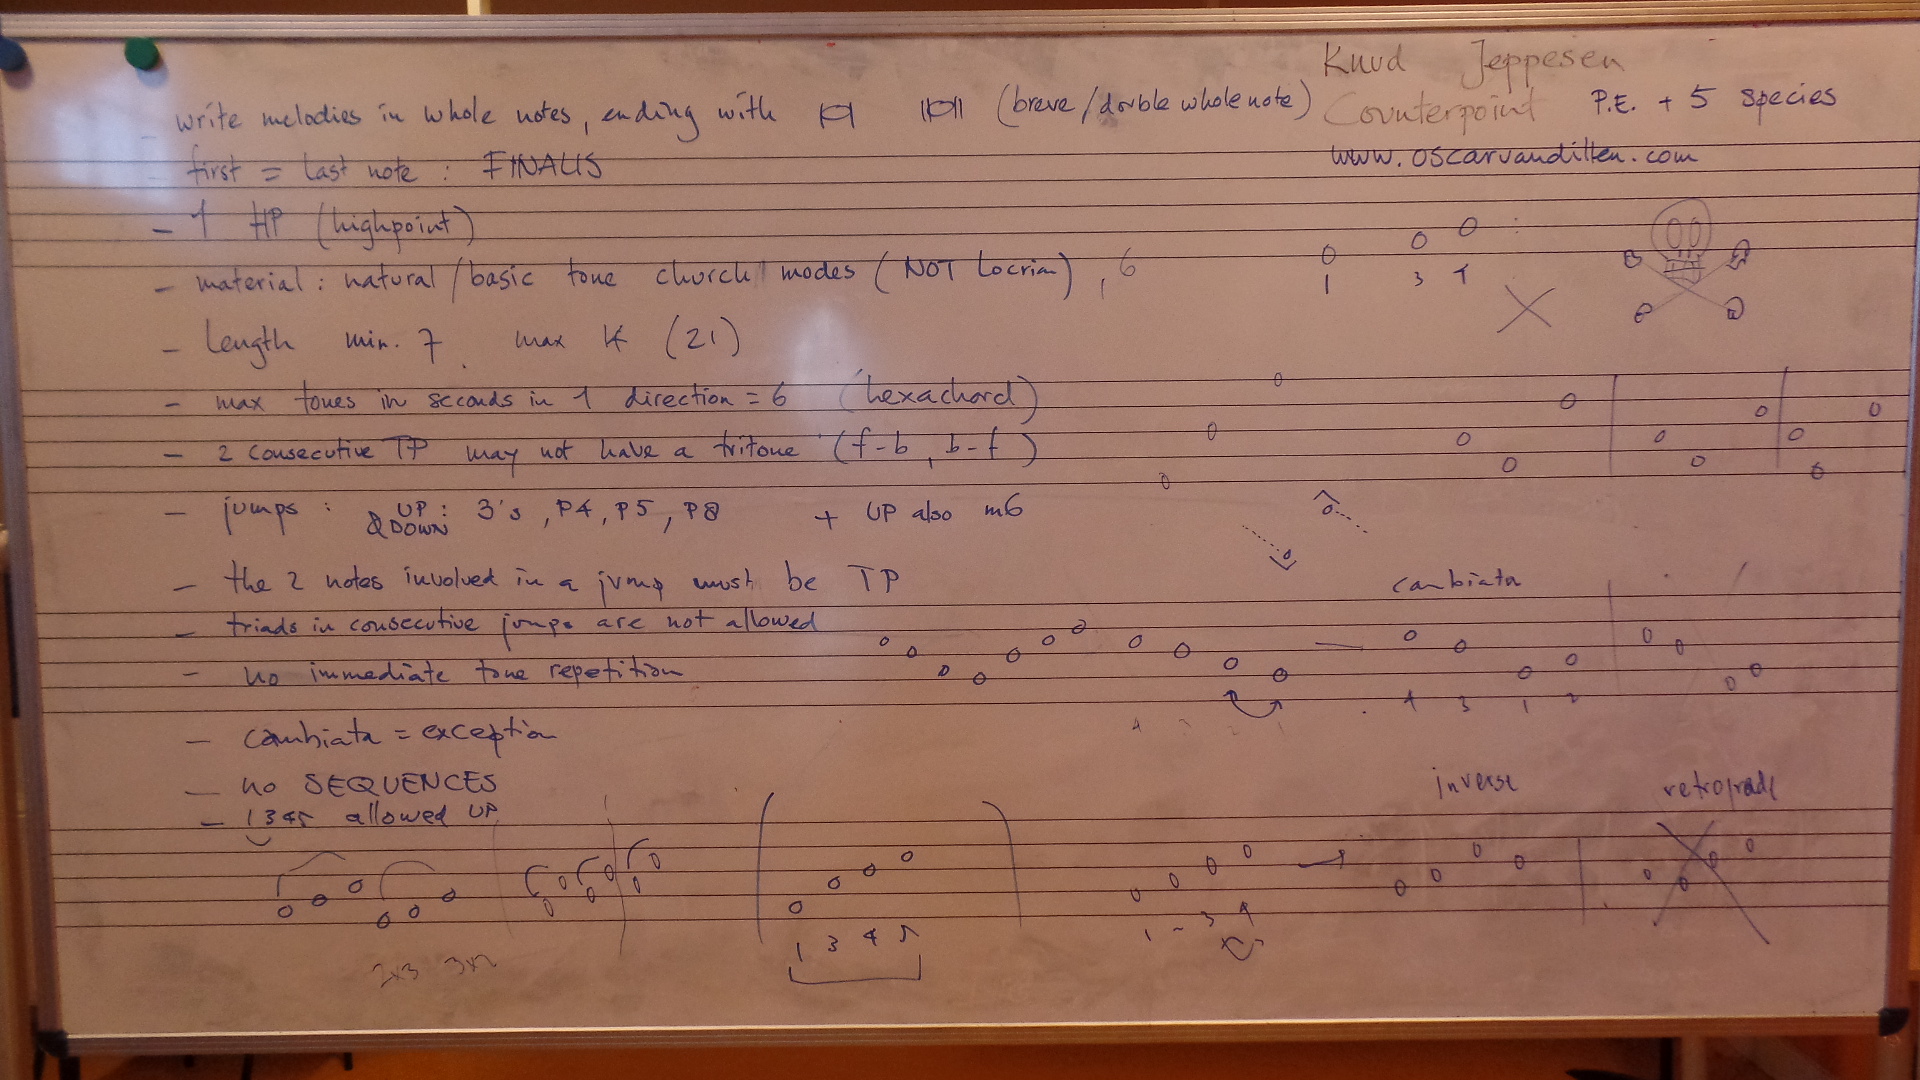 Knud Jeppesen
- write melodies in whole notes, ending with (breve/double whole note)
Counterpoint P.E. + 5 species
www.oscarvandillen.com
- first = last note : FINALIS
- 1 HP (highpoint)
- material : natural/basic tone church modes (NOT Locrian), 6
1 3 4
- Length min. 7 max (21)
- max tones in seconds in 1 direction = 6 (hexachord)
- 2 consecutive TP may not have a tritone (f-b, b-f)
- jumps : UP : 3's, P4, P5, P8 + UP also m6
& DOWN
- the 2 notes involved in a jump must be TP
cambiata
- triads in consecutive jumps are not allowed
- no immediate tone repetition
4 3 2 1
4 3 1 2
- cambiata = exception
- no SEQUENCES
inverse retrograde
- 1345 allowed UP
1 3 4 5
1 2 3 4
2x3 3x2